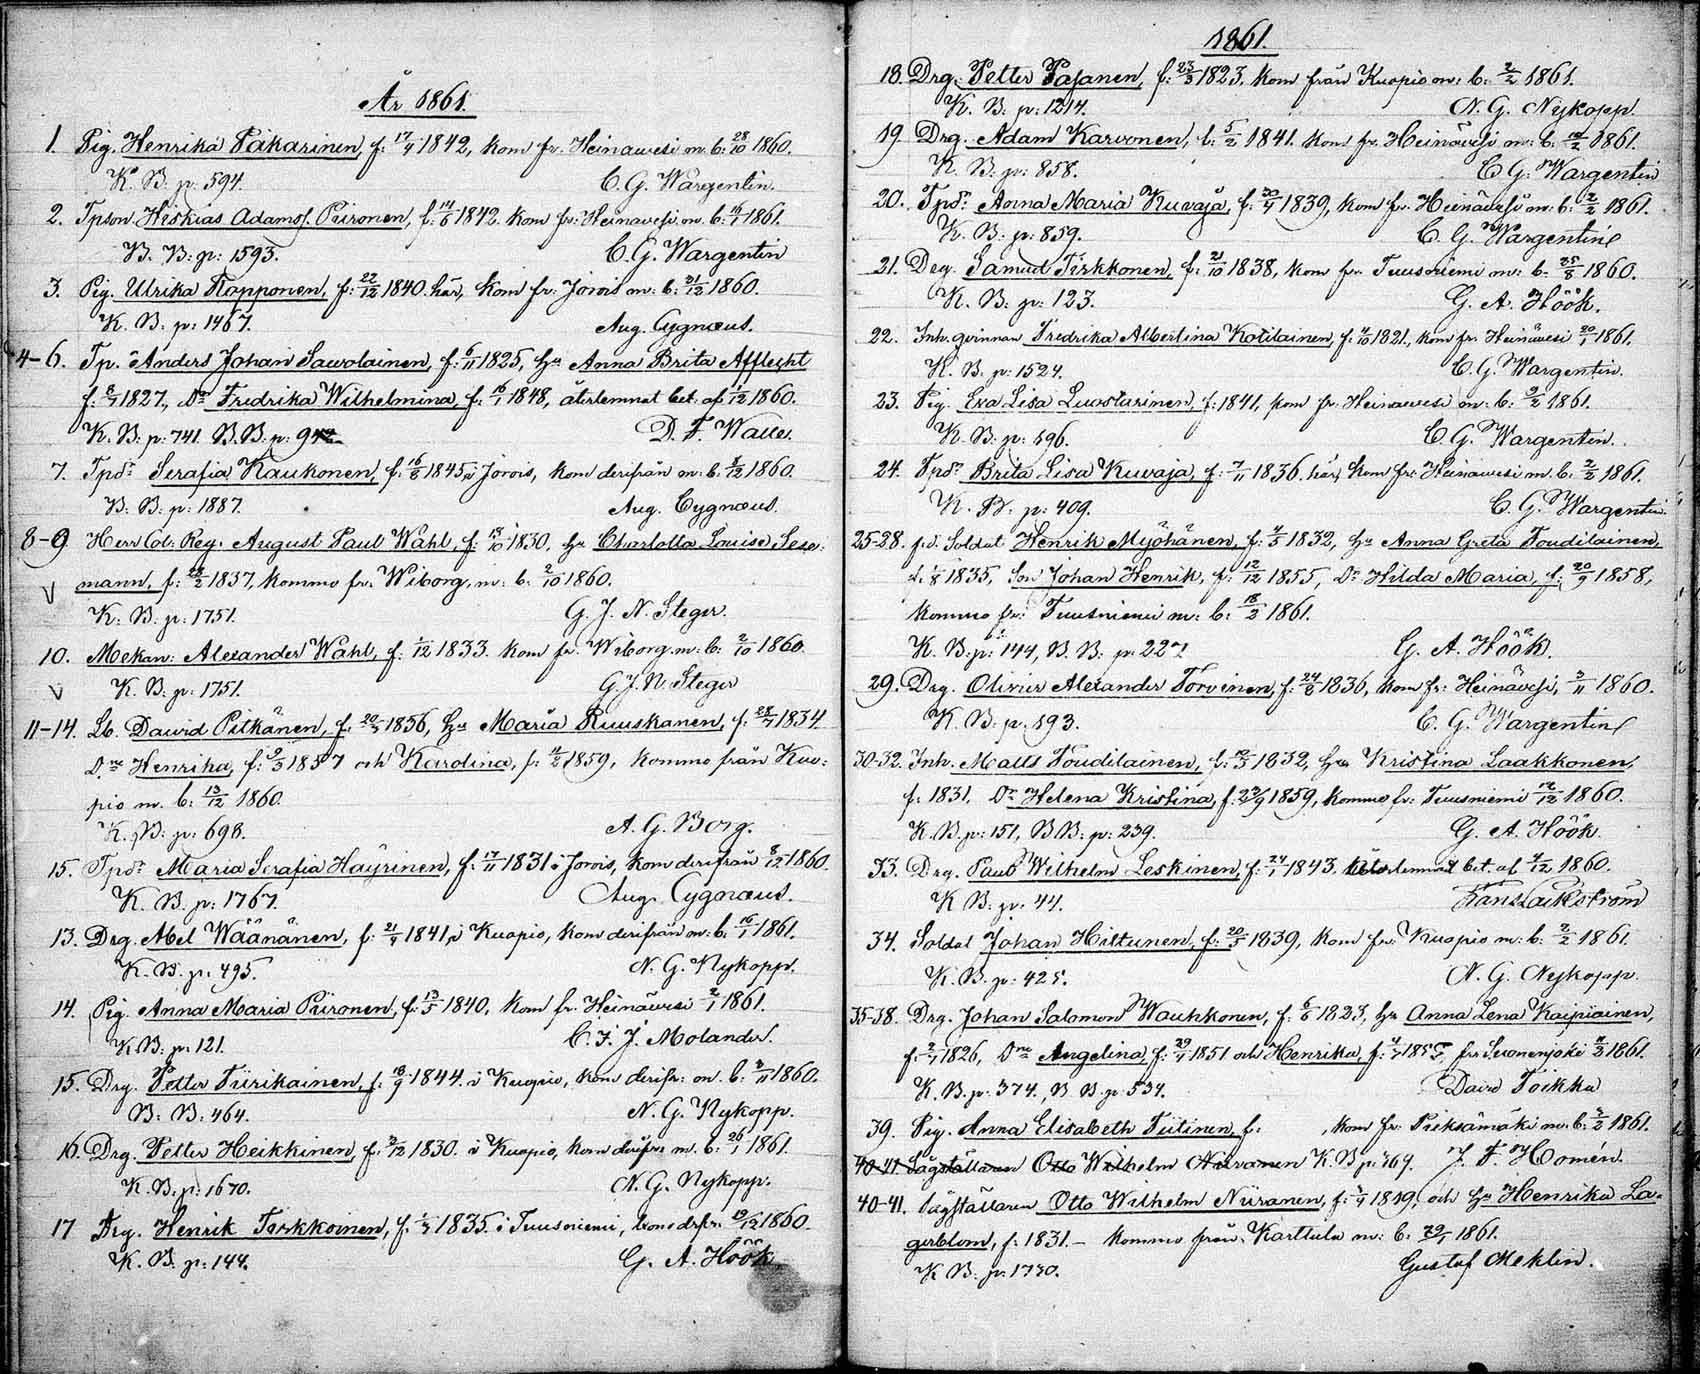 År 1861.
1. Pig. Henrika Pakarinen, f: 17/4 1842, kom fr. Heinawesi m. b: 28/10 1860.
K. B. p: 594. C. G. Wargentin.
2. Tpson Hiskias Adamsf. Piironen, f: 14/6 1842. kom fr: Heinavesi m. b: 16/1 1861.
B. B: p: 1593. C. G. Wargentin
3. Pig. Ulrika Kapponen, f: 22/12 1840 här, kom fr: Jorois m: b: 21/12 1860.
K. B. p: 1467. Aug. Cygnæus.
4-6. Tp. Anders Johan Sawolainen, f: 6/11 1825, hu Anna Brita Afflecht
f: 8/7 1827, Dr Fredrika Wilhelmina, f: 16/1 1848, återlemnat bet. af 1/12 1860.
K. B: p: 741. B. B: p: 942 D. F. Walle.
7. Tpdr Serafia Kaukonen, f: 16/8 1845 i Jorois, kom derifrån m: b: 8/12 1860.
B. B: p: 1887. Aug. Cygnæus.
8-9 Herr Col: Reg: August Paul Wahl, f: 15/10 1830, hu Charlotta Louise Sese-
mann, f: 28/2 1837, kommo fr. Wiborg, m: b: 2/10 1860.
K: B: p: 1751. G. J. N. Steger.
10. Mekan: Alexander Wahl, f: 1/12 1833. kom fr. Wiborg m: b: 2/10 1860.
K. B: p: 1751. G. J. N. Steger
11-14. Lb. David Pitkänen, f. 20/5 1836, hu Maria Ruuskanen, f: 28/7 1834
D:ne Henrika, f: 9/3 1857 och Karolina, f: 11/2 1859, kommo från Kuo-
pio m. b: 13/12 1860.
K. B: p: 698. A. G. Borg.
15. Tpdr Maria Serafia Häyrinen, f: 17/11 1831 i Jorois, kom derifrån 8/12 1860.
K. B. p: 1767. Aug. Cygnæus.
13. Drg. Abel Wäänänen, f: 21/4 1841, i Kuopio, kom derifrån m: b: 16/1 1861.
K. B. p: 495. N. G. Nykopp.
14. Pig. Anna Maria Piironen, f: 13/5 1840, kom fr. Heinäwesi 2/1 1861.
K. B: p: 121. C. F. J. Molander.
15. Drg. Petter Tiirikainen, f: 18/9 1844. i Kuopio, kom derifr: m. b: 3/11 1860.
B: B: 464. N. G. Nykopp.
16. Drg. Petter Heikkinen, f: 3/12 1830. i Kuopio, kom derifrn m. b: 26/1 1861.
K. B: p: 1670. N. G. Nykopp.
17 Drg. Henrik Tirkkoinen, f: 1/3 1835. i Tuusniemi, kom drfr: 19/12 1860.
K. B. p: 144. G. A. Höök.
1861.
18. Drg. Petter Pajanen, f: 23/3 1823. kom från Kuopio m: b: 2/2 1861.
K. B: p: 1214. N. G. Nykopp.
19. Drg. Adam Karvonen, f: 5/2 1841. kom fr. Heinävesi m: b: 10/2 1861.
K. B: p: 858. C. G. Wargentin
20. Tpdr. Anna Maria Kuvaja, f: 30/4 1839, kom fr. Heinävesi m: b: 2/2 1861.
K. B: p: 859. C. G. Wargentin
21. Drg. Samuel Tirkkonen, f: 21/10 1838, kom fr. Tuusniemi m: b: 25/8 1860.
K. B: p: 123. G. A. Höök.
22. Inh. qvinnan Fredrika Albertina Kotilainen, f: 4/10 1821, kom fr. Heinäwesi 20/1 1861.
K. B. p: 1524. C. G. Wargentin.
23. Pig. Eva Lisa Luostarinen, f: 1841, kom fr. Heinawesi m: b: 9/2 1861.
K. B: p: 596. C. G. Wargentin.
24. Tpdr Brita Lisa Kuvaja, f: 7/11 1836. här, kom fr: Heinawesi m. b: 2/2 1861.
K. B. p: 409. C. G. Wargentin.
25-28. f.d. Soldat Henrik Myöhänen, f: 4/5 1832, hu Anna Greta Toudilainen,
f. 1/8 1835, Son Johan Henrik, f: 12/12 1855, Dr Hilda Maria, f: 20/9 1858,
kommo fr: Tuusniemi m: b: 18/2 1861.
K. B: p: 144, B. B: p: 227 G. A. Höök.
29. Drg. Olivier Alexander Torvinen, f: 24/8 1836, kom fr: Heinävesi, 3/11 1860.
K. B: p. 593. C. G. Wargentin
30-32. Inh. Matts Toudilainen, f: 10/5 1832, hu Kristina Laakkonen,
f: 1831, Dr Helena Kristina, f: 29/9 1859, kommo fr: Tuusniemi 12/12 1860.
K. B. p: 151, B B: p: 239. G. A. Höök.
33. Drg. Paul Wilhelm Leskinen, f: 24/1 1843, återlemnat bet. af 4/12 1860.
K B: p: 44. Frans Laikström
34. Soldat Johan Hiltunen, f: 20/5 1839, kom fr: Kuopio m: b: 2/2 1861.
K. B. p: 425. N. G. Nykopp.
35-38. Drg. Johan Salomon Wauhkonen, f: 6/6 1823, hu Anna Lena Kaipiainen,
f: 2/7 1826, D:ne Angelina, f: 29/4 1851 och Henrika, f: 4/7 185 fr Savonenjoki 2/3 1861.
K. B. p: 374., B B. p: 534. David Toikka
39. Pig. Anna Elisabeth Tiitinen, f: , kom fr: Pieksämäki m: b: 2/2 1861.
40-41 Sågställaren Otto Wilhelm Niiranen K. B p: 769. J. F. Homén.
40-41. Sågställaren Otto Wilhelm Niiranen, f: 3/4 1819, och hu Henrika La-
gerblom, f: 1831. - kommo från Karttula m: b: 29/1 1861.
K. B: p: 1730. Gustaf Meklin.